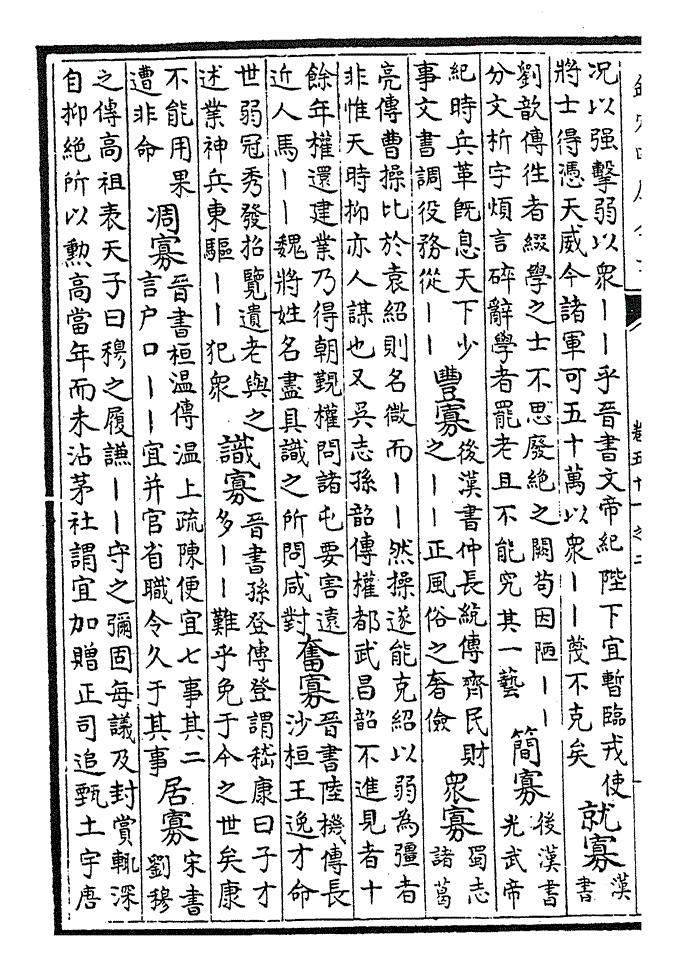 况以强擊弱以衆——乎晉書文帝紀陛下宜暫臨戎使
將士得憑天威今諸軍可五十萬以衆——蔑不克矣
就寡
漢
書
劉歆傳徃者綴學之士不思廢絶之闕茍因陋——
分文析字煩言碎辭學者罷老且不能究其一藝
簡寡
後漢書
光武帝
紀時兵革旣息天下少
事文書調役務從——
豐寡
後漢書仲長統傳齊民財
之——正風俗之奢儉
衆寡
蜀志
諸葛
亮傳曹操比於袁紹則名微而——然操遂能克紹以弱為彊者
非惟天時抑亦人謀也又吳志孫韶傳權都武昌韶不進見者十
餘年權還建業乃得朝覲權問諸屯要害遠
近人馬——魏將姓名盡具識之所問咸對
奮寡
晉書陸機傳長
沙桓王逸才命
世弱冠秀發招覽遺老與之
述業神兵東驅——犯衆
識寡
晉書孫登傳登謂嵇康曰子才
多——難乎免于今之世矣康
不能用果
遭非命
凋寡
晉書桓温傳温上疏陳便宜七事其二
言户口——宜并官省職令久于其事
居寡
宋書
劉穆
之傳高祖表天子曰穆之履謙——守之彌固每議及封賞輒深
自抑絶所以勲高當年而未沾茅社謂宜加贈正司追甄土宇唐